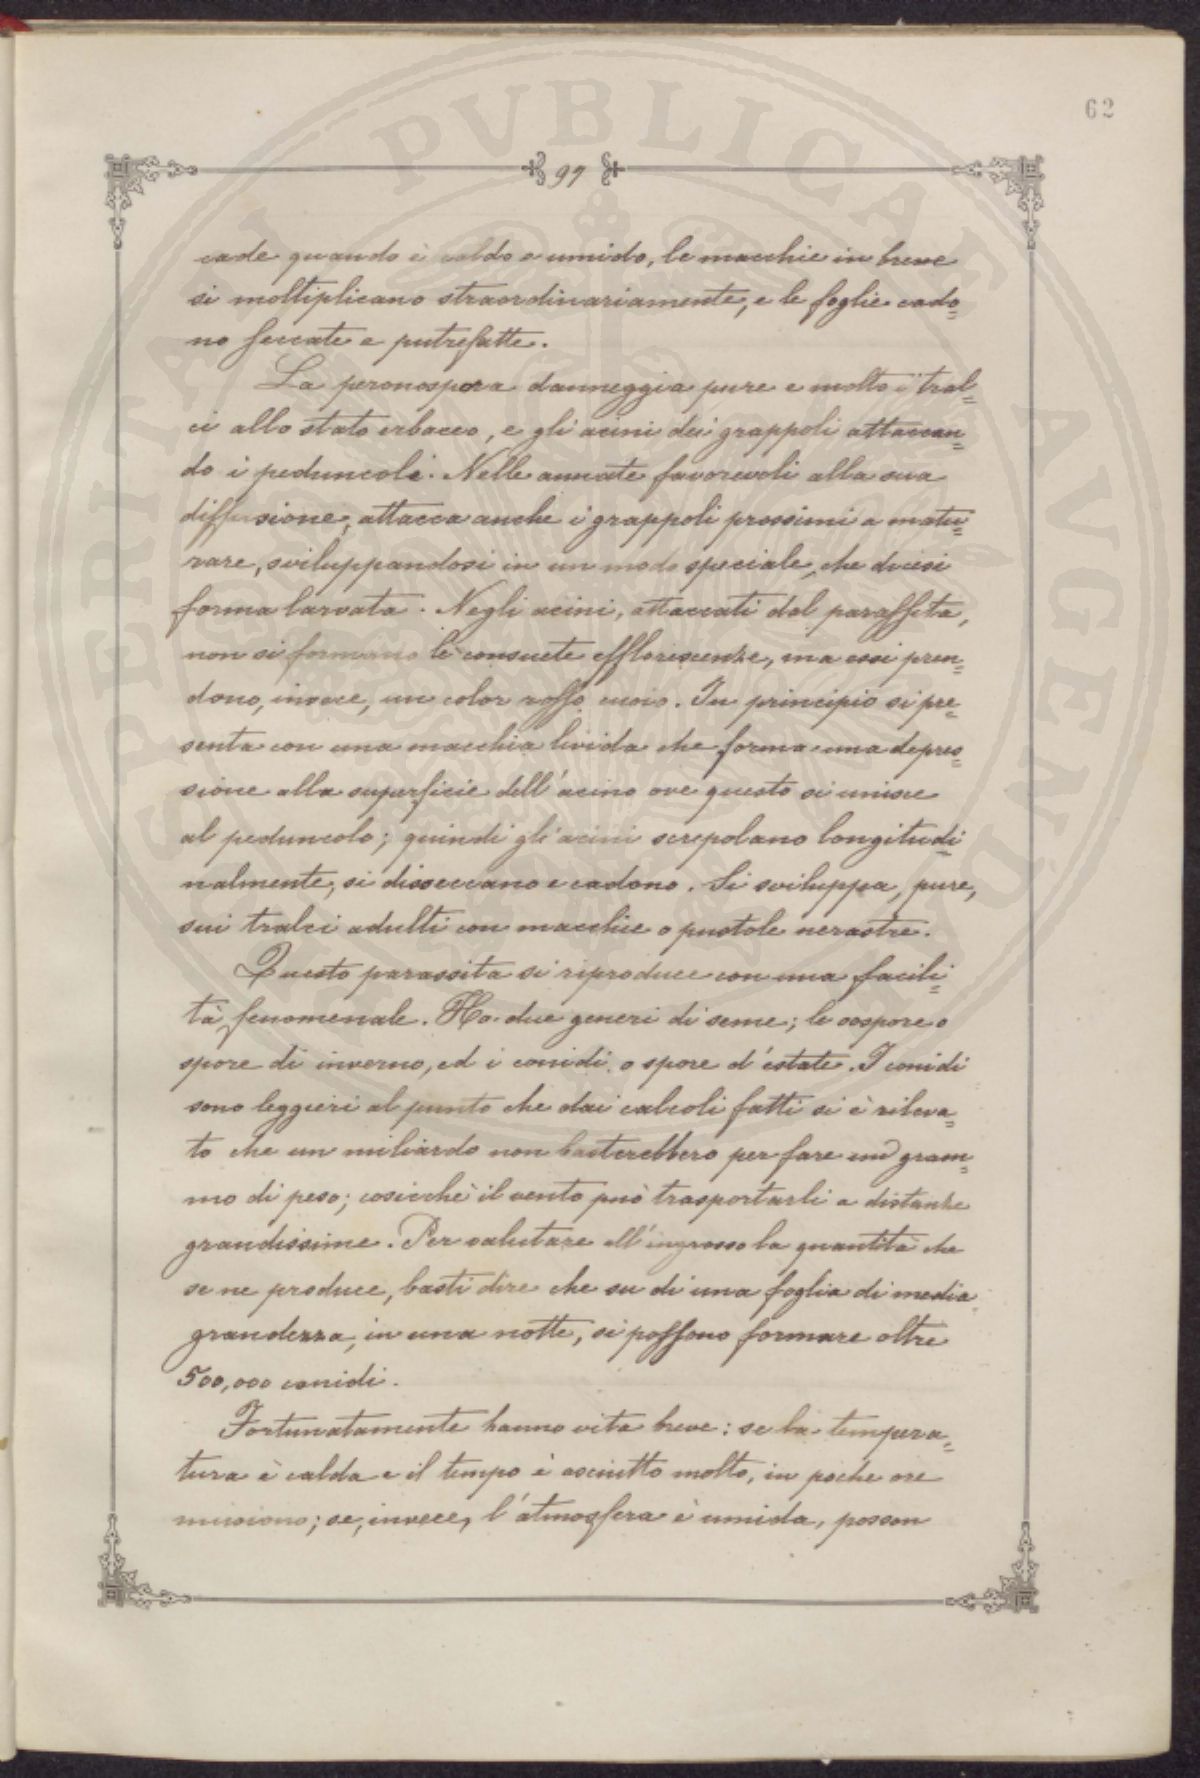 62
97
cade quando è caldo e umido, le macchie in breve
si moltiplicano straordinariamente, e le foglie cado=
no seccate e putrefatte.
La peronospora danneggia pure e molto i tral=
ci allo stato erbaceo, e gli acini dei grappoli attaccan=
do i peduncoli. Nelle annate favorevoli alla sua
diffusione, attacca anche i grappoli prossimi a matu=
rare, sviluppandosi in un modo speciale, che dicesi
forma larvata. Negli acini, attaccati dal parassita,
non si formano le consuete efflorescenze, ma essi pren=
dono, invece, un color rosso cuoio. In principio si pre=
senta con una macchia livida che forma una depres=
sione alla superficie dell'acino ove questo si unisce
al peduncolo; quindi gli acini screpolano longitudi=
nalmente, si disseccano e cadono. Si sviluppa, pure,
sui tralci adulti con macchie o pustole nerastre.
Questo parassita si riproduce con una facili=
tà fenomenale. Ha due generi di seme; le oospore o
spore di inverno, ed i conidi o spore d'estate. I conidi
sono leggieri al punto che dai calcoli fatti si è rileva=
to che un miliardo non basterebbero per fare un gram=
mo di peso; cosicchè il vento può trasportarli a distanze
grandissime. Per valutare all'ingrosso la quantità che
se ne produce, basti dire che su di una foglia di media
grandezza, in una notte, si possono formare oltre
500,000 conidi.
Fortunatamente hanno vita breve: se la tempera=
tura è calda e il tempo è asciutto molto, in poche ore
muoiono; se, invece, l'atmosfera è umida, posson
SPERITA I PVBLICAE AVGENDA